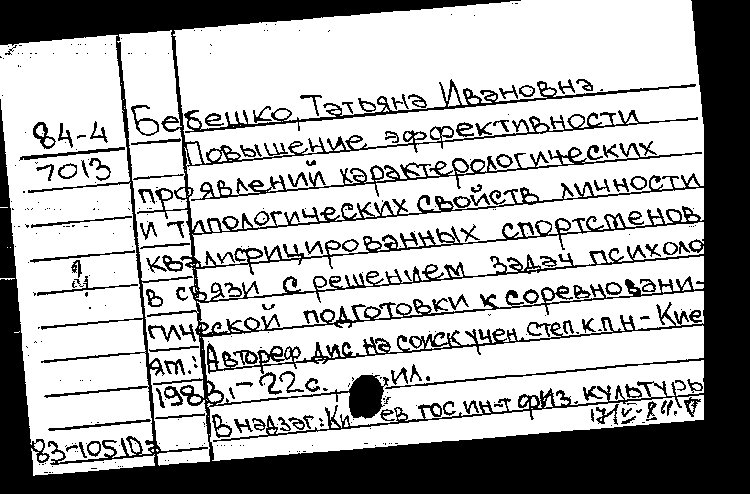 Бебешко, Татьяна Ивановна.
84-4
7013
Повышение эффективности
проявлений характерологических
и типологических свойств личности
квалифицированных спортсменов
в связи с решением задач психоло
гической подготовки к соревновани-
ям.: Автореф. дис. на соиск учен. степ. к.п.н - Кие
1983. - 22 с. ил.
В надзаг.: Ки ев гос. ин-т физ. культуры
83-10510д